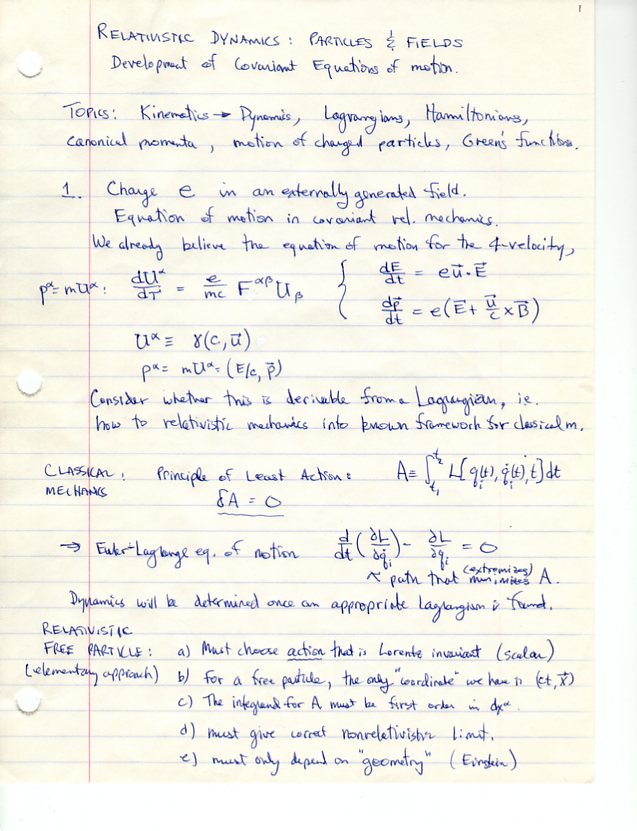 1
RELATIVISTIC DYNAMICS: PARTICLES & FIELDS
Development of Covariant Equations of motion.
TOPICS: Kinematics → Dynamics, Lagrangians, Hamiltonians,
canonical momenta, motion of charged particles, Green's functions.
1. Charge e in an externally generated field.
Equation of motion in covariant rel. mechanics.
We already believe the equation of motion for the 4-velocity,
p^α = mU^α: dU^α/dτ = e/mc F^{αβ} U_β { dE/dt = e u⃗·E⃗
dp⃗/dt = e(E⃗ + u⃗/c × B⃗)
U^α ≡ γ(c, u⃗)
p^α = mU^α = (E/c, p⃗)
Consider whether this is derivable from a Lagrangian, ie.
how to relativistic mechanics into known framework for classical m.
CLASSICAL MECHANICS: Principle of Least Action: A ≡ ∫_{t₁}^{t₂} L[q_i(t), q̇_i(t), t] dt
δA = 0
⇒ Euler-Lagrange eq. of motion d/dt (∂L/∂q̇_i) - ∂L/∂q_i = 0
path that minimizes (extremizes) A.
Dynamics will be determined once an appropriate lagrangian is found.
RELATIVISTIC
FREE PARTICLE: a) Must choose action that is Lorentz invariant (scalar)
(elementary approach) b) for a free particle, the only "coordinate" we have is (ct, x⃗)
c) The integrand for A must be first order in dx^α.
d) must give correct nonrelativistic limit.
e) must only depend on "geometry" (Einstein)